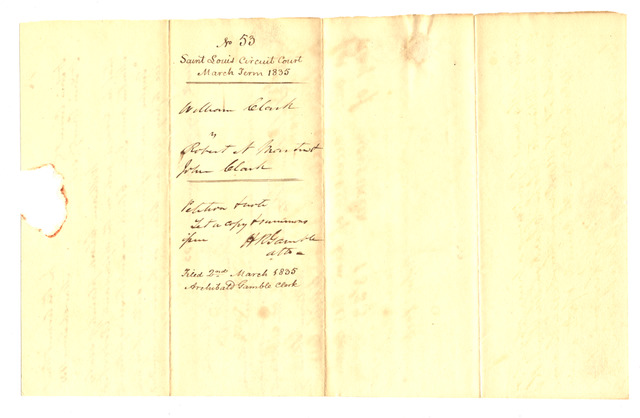 No 53
Saint Louis Circuit Court
March Term 1835
William Clark
vs
Robert N Moore &
John Clark
Petition & note
Let a copy & summons
issue H R Gamble
atto
Filed 2nd March 1835
Archibald Gamble Clerk